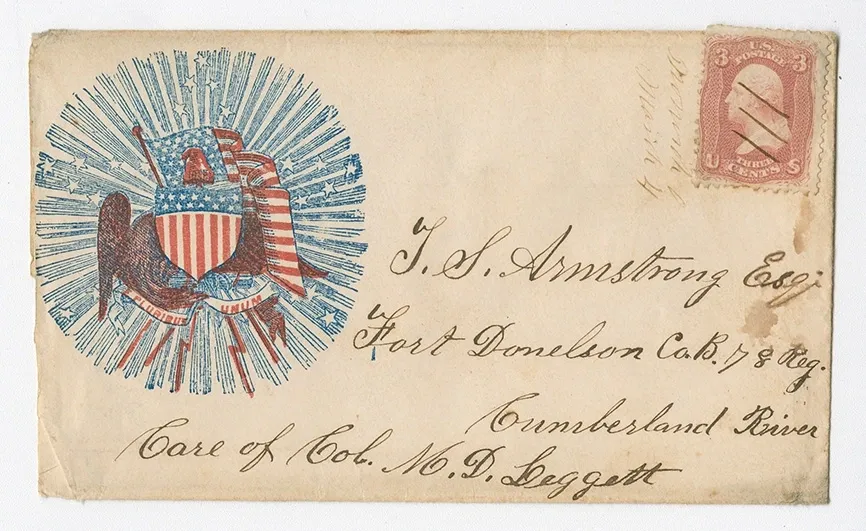 U.S.
POSTAGE
3 3
U S
THREE
CENTS
March 4
T. S. Armstrong Esq.
Fort Donelson Co. B. 78 Reg.
Cumberland River
Care of Col. M. D. Leggett
PLURIBUS UNUM